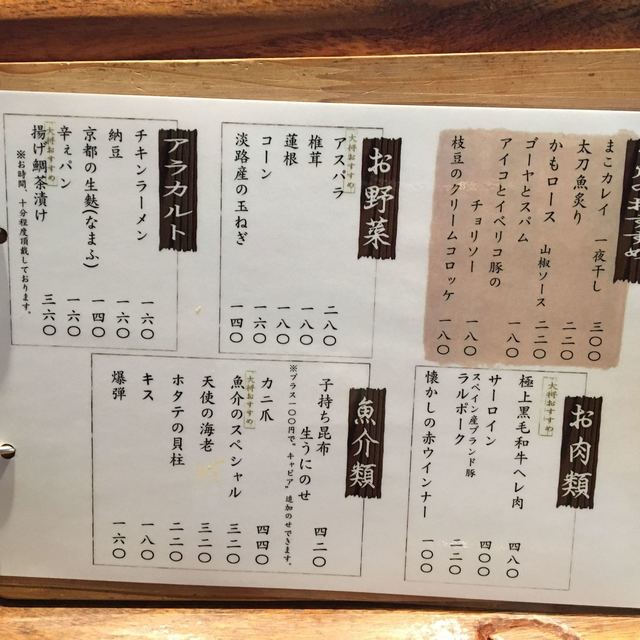 まこカレイ 一夜干し 三〇〇
太刀魚炙り 二二〇
かもロース 山椒ソース 二二〇
ゴーヤとスパム 一八〇
アイコとイベリコ豚の
チョリソー 一八〇
枝豆のクリームコロッケ 一八〇
お野菜
大将おすすめ
アスパラ 二八〇
椎茸 一八〇
蓮根 一八〇
コーン 一六〇
淡路産の玉ねぎ 一四〇
アラカルト
チキンラーメン 一六〇
納豆 一六〇
京都の生麩(なまふ) 一四〇
辛ぇパン 一六〇
大将おすすめ
揚げ鯛茶漬け 三六〇
※お時間、十分程度頂戴しております。
お肉類
大将おすすめ
極上黒毛和牛ヘレ肉 四八〇
サーロイン 四〇〇
スペイン産ブランド豚
ラルポーク 二二〇
懐かしの赤ウインナー 一〇〇
魚介類
子持ち昆布
生うにのせ 四二〇
※プラス一〇〇円で、キャビア追加のせできます。
カニ爪 四四〇
大将おすすめ
魚介のスペシャル 三二〇
天使の海老 三二〇
ホタテの貝柱 二二〇
キス 一八〇
爆弾 一六〇